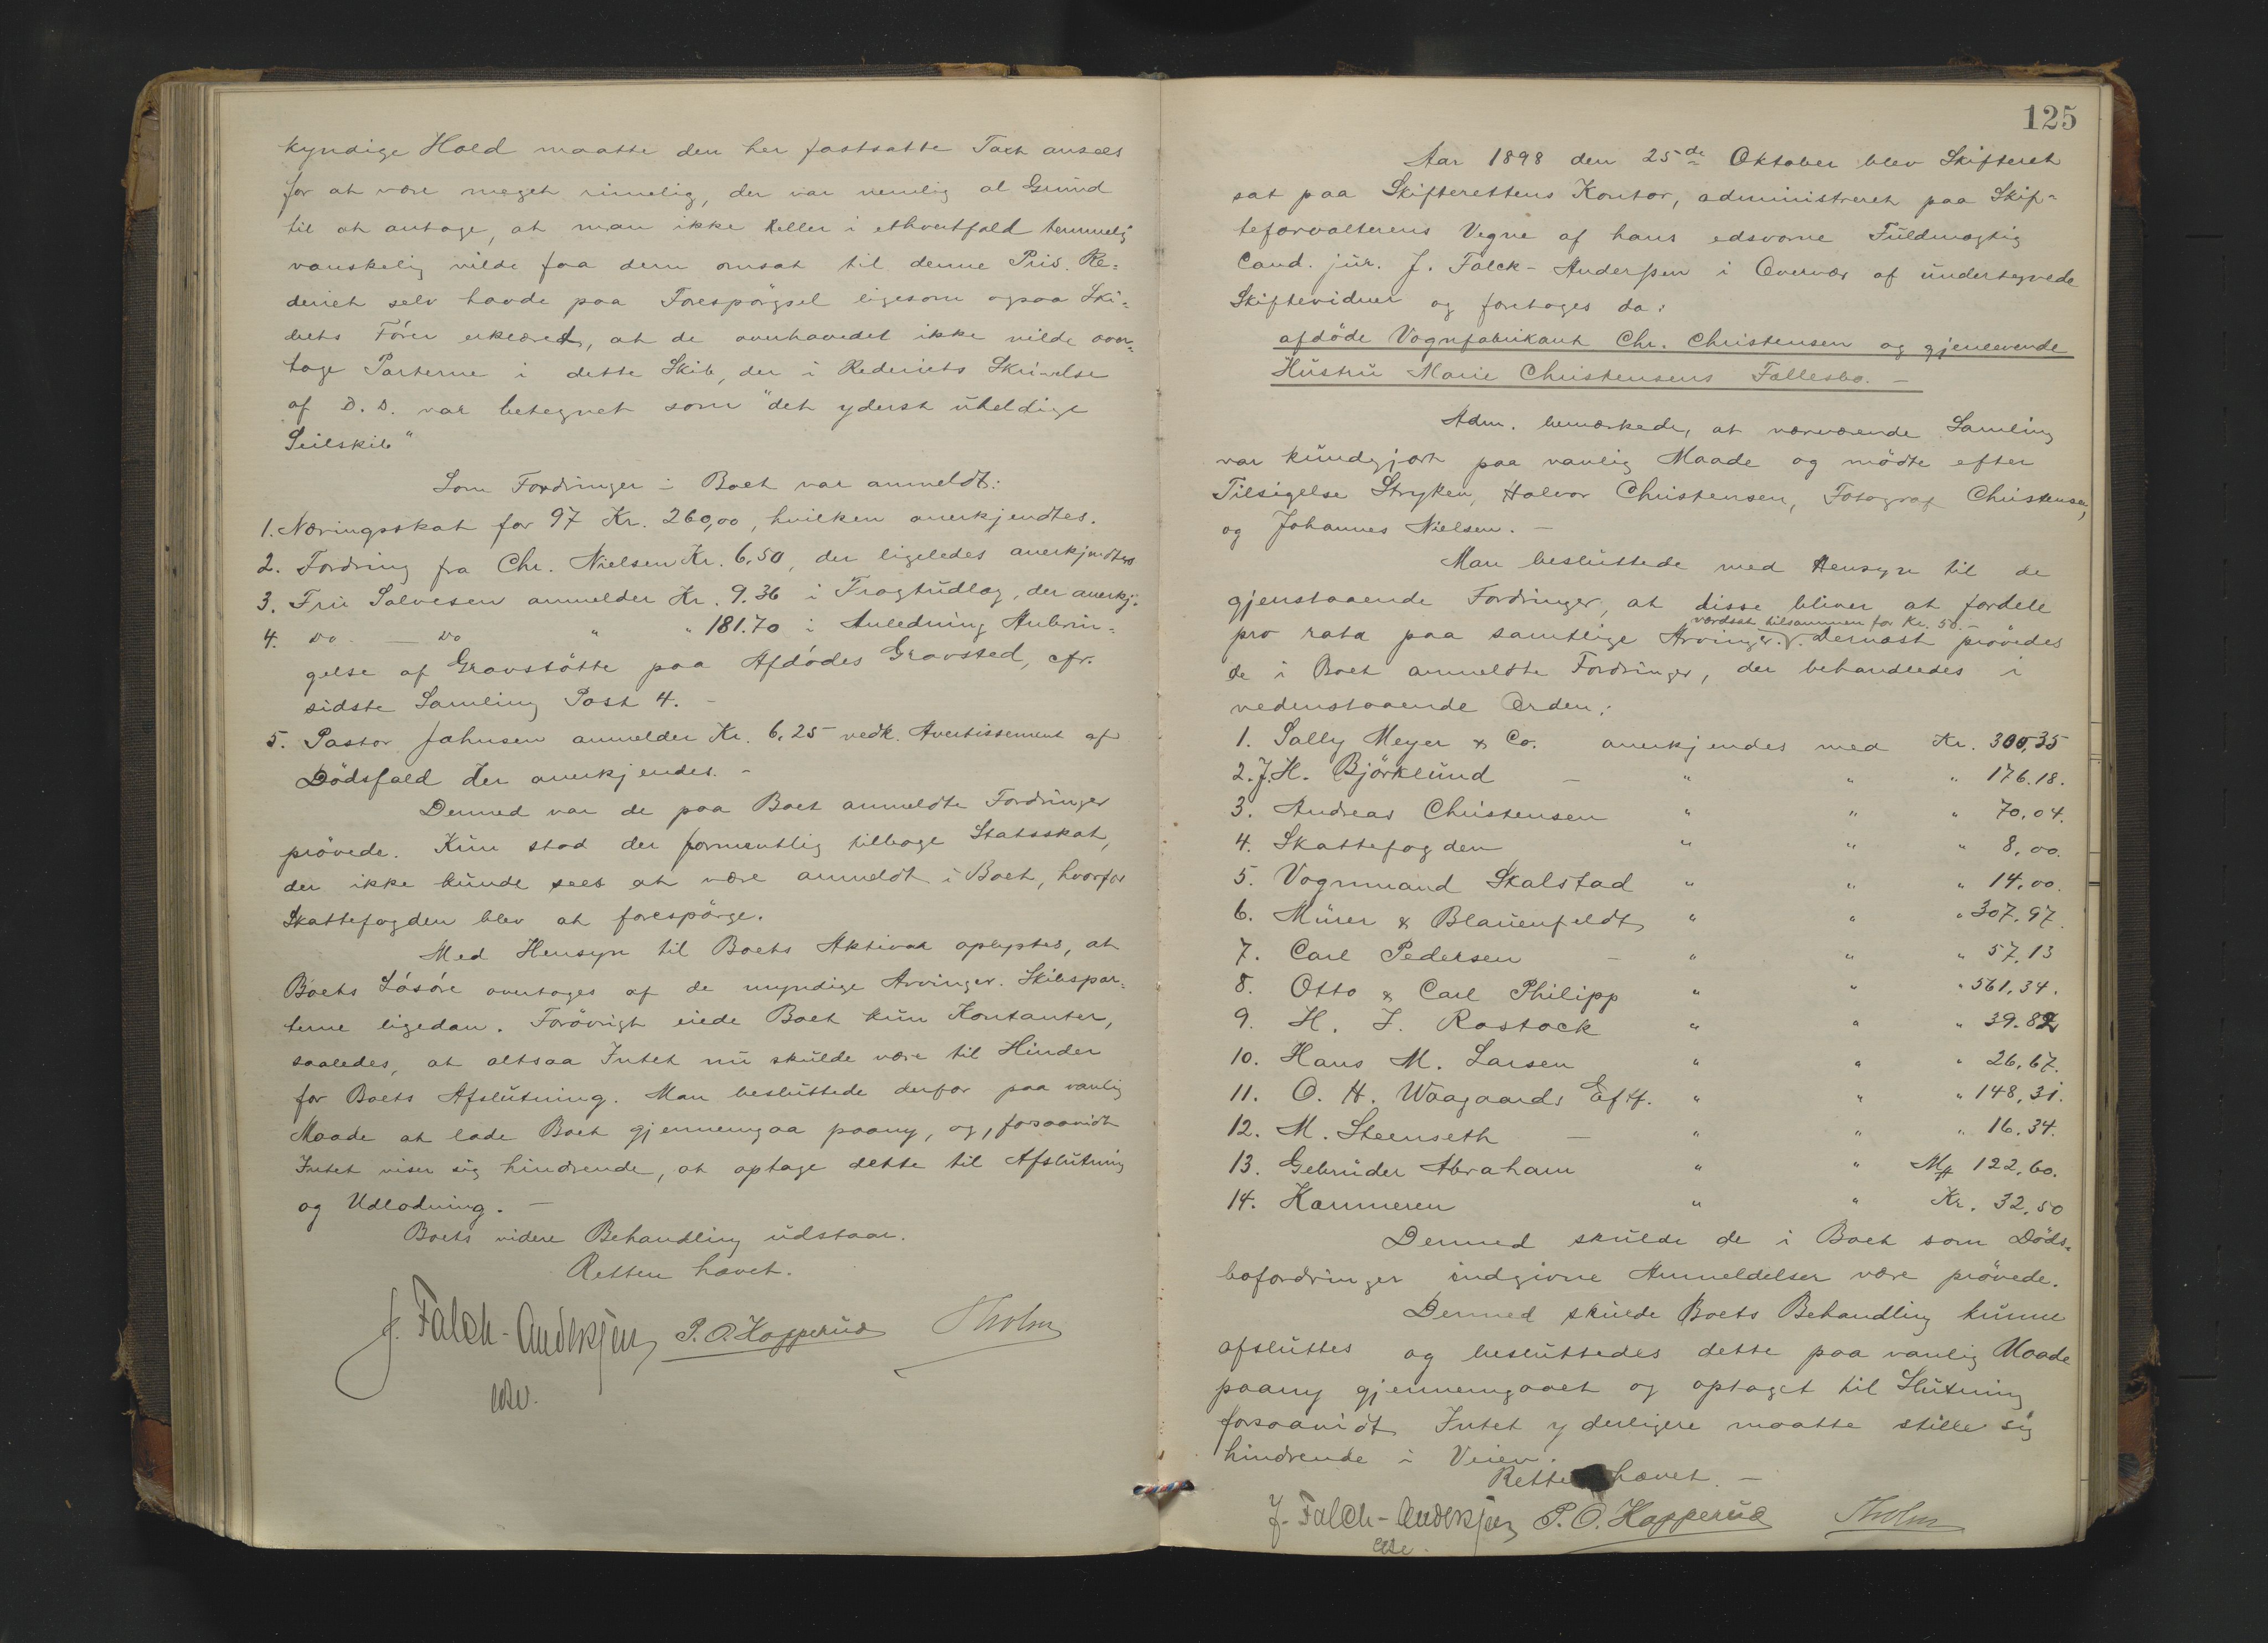 kyndige Hold maatte den her fastsatte Taxt ansees
for at være meget rimelig, der var nemlig al Grund
til at antage, at man ikke heller i ethvertfald temmelig
vanskelig vilde faa dem omsat til denne Pris. Re=
deriet selv havde paa Forespørgsel ligesom ogsaa Ski=
bets Fører erklæret, at de overhovedet ikke vilde over=
tage Parterne i dette Skib, der i Rederiets Skrivelse
af D. D. var betegnet som "det yderst uheldige
Seilskib"
Som Fordringer i Boet var anmeldt:
1. Næringsskat for 97 Kr. 260,00, hvilken anerkjendtes.
2. Fordring fra Chr. Nielsen Kr. 6,50, der ligeledes anerkjendtes
3. Fru Salvesen anmelder Kr. 9.36 i Fragtudlæg, der anerkj.
4. Do — Do " " 181.70 i Anledning Anbrin=
gelse af Gravstøtte paa Afdødes Gravsted, cfr.
sidste Samling Post 4. –
5. Pastor Johnsen anmelder Kr. 6,25 vedk. Avertissement af
Dødsfald der anerkjendes. –
Dermed var de paa Boet anmeldte Fordringer
prøvede. Kun stod der formentlig tilbage Statsskat,
der ikke kunde sees at være anmeldt i Boet, hvorfor
Skattefogden blev at forespørge.
Med Hensyn til Boets Aktiva oplystes, at
Boets Løsøre overtoges af de myndige Arvinger. Skibspar=
terne ligedan. Forøvrigt eiede Boet kun Kontanter,
saaledes, at altsaa Intet nu skulde være til Hinder
for Boets Afslutning. Man besluttede derfor paa vanlig
Maade at lade Boet gjennemgaa paany, og, forsaavidt
Intet viser sig hindrende, at optage dette til Afslutning
og Udlodning. –
Boets videre Behandling udstaar.
Retten hævet.
J. Falck-Anderssen P. O. Kopperud Tholm
125
Aar 1898 den 25de Oktober blev Skifteret
sat paa Skifterettens Kontor, administreret paa Skif=
teforvalterens Vegne af hans edsvorne Fuldmægtig
Cand. jur. J. Falck-Anderssen i Overvær af undertegnede
Skiftevidner og foretoges da:
afdøde Vognfabrikant Chr. Christensen og gjenlevende
Hustru Marie Christensens Fællesbo. –
Adm. bemærkede, at nærværende Samling
var kundgjort paa vanlig Maade og mødte efter
Tilsigelse Stryken, Halvor Christensen, Fotograf Christensen,
og Johannes Nielsen. –
Man besluttede med Hensyn til de
gjenstaaende Fordringer, at disse bliver at fordele
værdsat tilsammen for Kr. 50.–
pro rata paa samtlige Arvinger. Dernæst prøvedes
de i Boet anmeldte Fordringer, der behandledes i
nedenstaaende Orden:
1. Sally Meyer & Co. anerkjendes med Kr. 300,35
2. J. H. Bjørklund — " " " 176.18.
3. Andreas Christensen " " " 70,04.
4. Skattefogden " " " 8,00.
5. Vognmand Skalstad " " " 14,00.
6. Mürer & Blauenfeldt " " " 307,97.
7. Carl Pedersen — " " " 57,13
8. Otto & Carl Philipp " " " 561,34.
9. H. J. Rostock " " " 39.82
10. Hans M. Larsen " " " 26,67.
11. O. H. Waagaards Eftf. " " " 148,31.
12. M. Steenseth — " " " 16.34.
13. Gebrüder Abraham " " M 122,60.
14. Kæmneren " " Kr. 32,50
Dermed skulde de i Boet som Døds=
bofordringer indgivne Anmeldelser være prøvede.
Dermed skulde Boets Behandling kunne
afsluttes og besluttedes dette paa vanlig Maade
paany gjennemgaaet og optaget til Slutning
forsaavidt Intet yderligere maatte stille sig
hindrende i Veien.
Retten hævet. –
J. Falck-Anderssen P. O. Kopperud Tholm